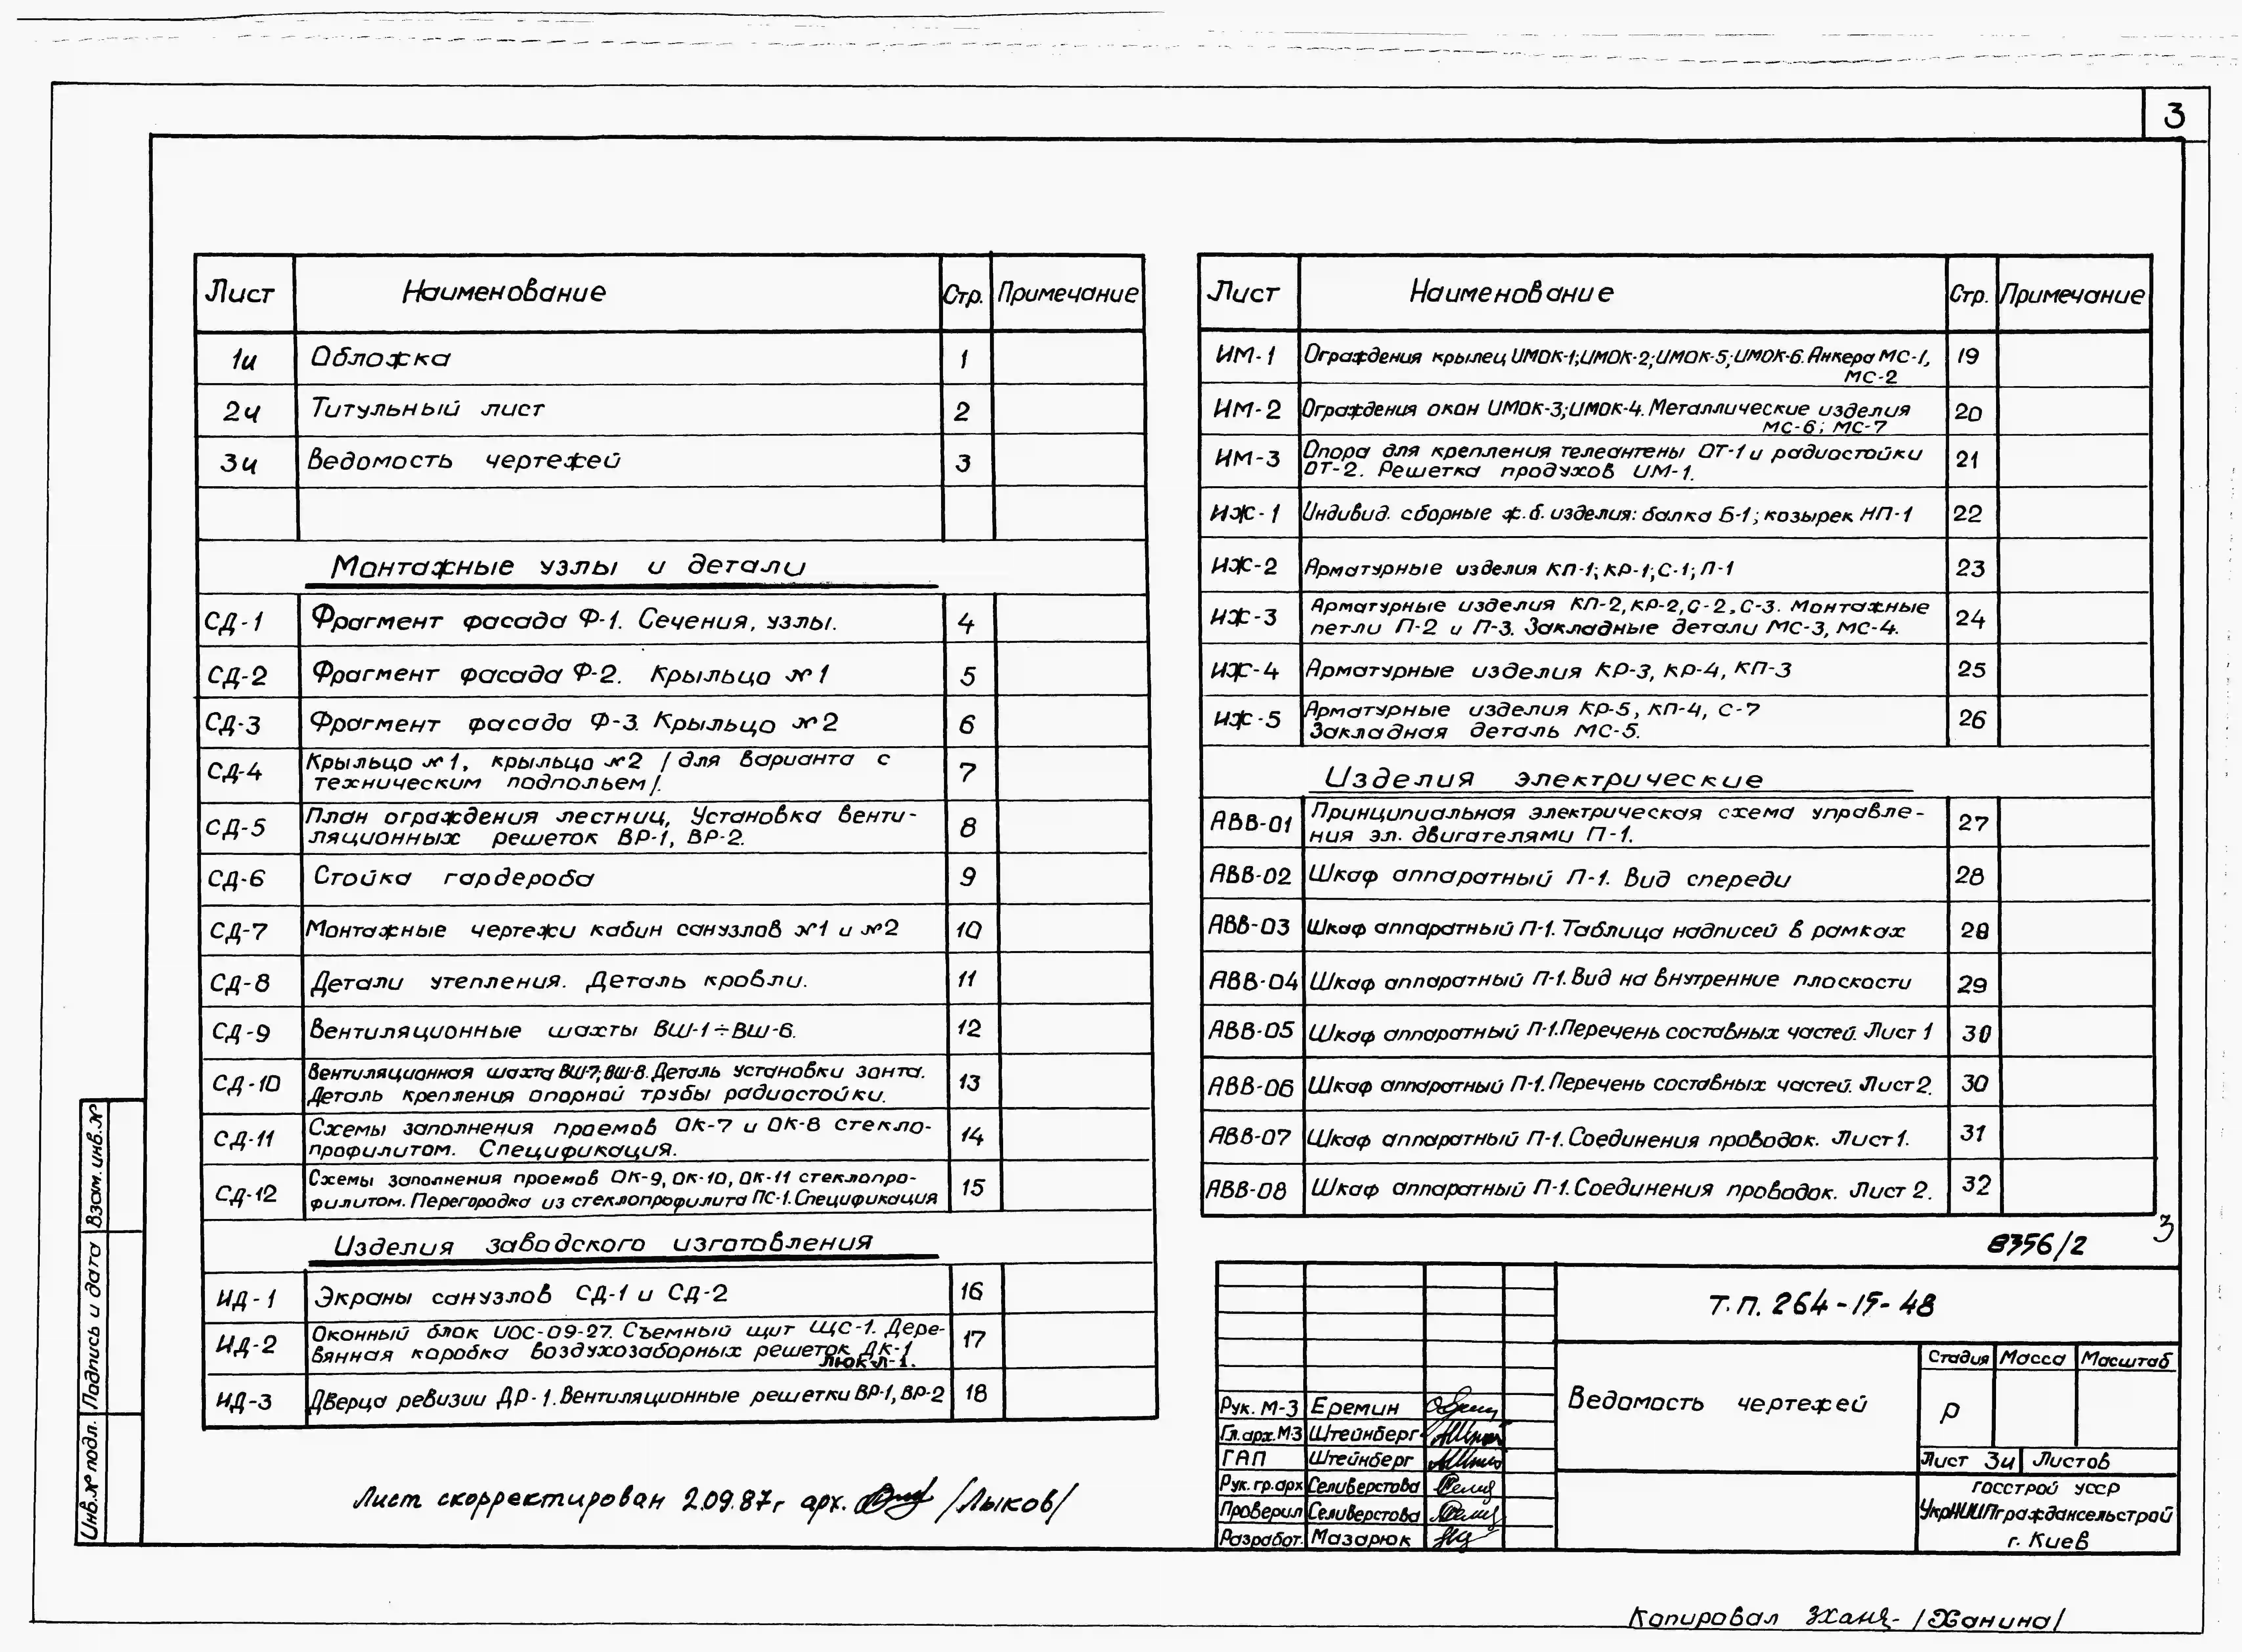 3
Лист Наименование Стр. Примечание
1и Обложка 1
2и Титульный лист 2
3и Ведомость чертежей 3
Монтажные узлы и детали
СД-1 Фрагмент фасада Ф-1. Сечения, узлы. 4
СД-2 Фрагмент фасада Ф-2. Крыльцо №1 5
СД-3 Фрагмент фасада Ф-3. Крыльцо №2 6
СД-4 Крыльцо №1, крыльцо №2 /для варианта с
техническим подпольем/. 7
СД-5 План ограждения лестниц, Установка венти-
ляционных решеток ВР-1, ВР-2. 8
СД-6 Стойка гардероба 9
СД-7 Монтажные чертежи кабин санузлов №1 и №2 10
СД-8 Детали утепления. Деталь кровли. 11
СД-9 Вентиляционные шахты ВШ-1÷ВШ-6. 12
СД-10 Вентиляционная шахта ВШ-7; ВШ-8. Деталь установки зонта.
Деталь крепления опорной трубы радиостойки. 13
СД-11 Схемы заполнения проемов ОК-7 и ОК-8 стекло-
профилитом. Спецификация. 14
СД-12 Схемы заполнения проемов ОК-9, ОК-10, ОК-11 стеклопро-
филитом. Перегородка из стеклопрофилита ПС-1. Спецификация 15
Изделия заводского изготовления
ИД-1 Экраны санузлов СД-1 и СД-2 16
ИД-2 Оконный блок ИОС-09-27. Съемный щит ЩС-1. Дере-
вянная коробка воздухозаборных решеток ДК-1 17
Люк Л-1.
ИД-3 Дверца ревизии ДР-1. Вентиляционные решетки ВР-1, ВР-2 18
Лист Наименование Стр. Примечание
ИМ-1 Ограждения крылец ИМОК-1; ИМОК-2; ИМОК-5; ИМОК-6. Анкера МС-1, 19
МС-2
ИМ-2 Ограждения окон ИМОК-3; ИМОК-4. Металлические изделия 20
МС-6; МС-7
ИМ-3 Опора для крепления телеантены ОТ-1 и радиостойки
ОТ-2. Решетка продухов ИМ-1. 21
ИЖ-1 Индивид. сборные ж.б. изделия: балка Б-1; козырек НП-1 22
ИЖ-2 Арматурные изделия КП-1; КР-1; С-1; П-1 23
ИЖ-3 Арматурные изделия КП-2, КР-2, С-2, С-3. Монтажные
петли П-2 и П-3. Закладные детали МС-3, МС-4. 24
ИЖ-4 Арматурные изделия КР-3, КР-4, КП-3 25
ИЖ-5 Арматурные изделия КР-5, КП-4, С-7
Закладная деталь МС-5. 26
Изделия электрические
АВВ-01 Принципиальная электрическая схема управле-
ния эл. двигателями П-1. 27
АВВ-02 Шкаф аппаратный П-1. Вид спереди 28
АВВ-03 Шкаф аппаратный П-1. Таблица надписей в рамках 28
АВВ-04 Шкаф аппаратный П-1. Вид на внутренние плоскости 29
АВВ-05 Шкаф аппаратный П-1. Перечень составных частей. Лист 1 30
АВВ-06 Шкаф аппаратный П-1. Перечень составных частей. Лист 2. 30
АВВ-07 Шкаф аппаратный П-1. Соединения проводок. Лист 1. 31
АВВ-08 Шкаф аппаратный П-1. Соединения проводок. Лист 2. 32
8356/2 3
Т.П. 264-15-48
Ведомость чертежей
Стадия Масса Масштаб
Р
Лист 3и Листов
Госстрой УССР
УкрНИИПграждансельстрой
г. Киев
Рук. М-3 Еремин
Гл.арх.М3 Штейнберг
ГАП Штейнберг
Рук. гр.арх Селиверстова
Проверил Селиверстова
Разработ. Мазарюк
Лист скорректирован 2.09.87г арх. /Лыков/
Инв.№ подл. Подпись и дата Взам.инв.№
Копировал /Жанина/